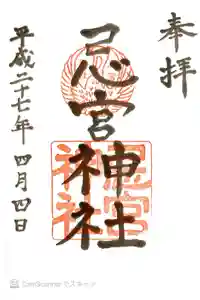 奉拝
忌宮神社
忌宮
神社
平成二十七年 四月四日
CamScanner でスキャン